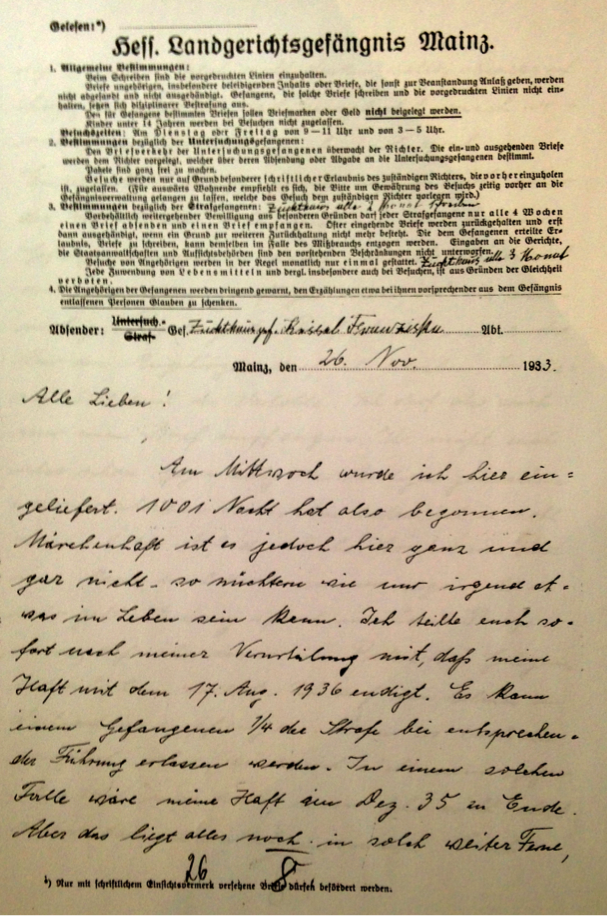 Gelesen:*)
Hess. Landgerichtsgefängnis Mainz.
1. Allgemeine Bestimmungen:
Beim Schreiben sind die vorgedruckten Linien einzuhalten.
Briefe ungehörigen, insbesondere beleidigenden Inhalts oder Briefe, die sonst zur Beanstandung Anlaß geben, werden
nicht abgesandt und nicht ausgehändigt. Gefangene, die solche Briefe schreiben und die vorgedruckten Linien nicht ein-
halten, setzen sich disziplinarer Bestrafung aus.
Den für Gefangene bestimmten Briefen sollen Briefmarken oder Geld nicht beigelegt werden.
Kinder unter 14 Jahren werden bei Besuchen nicht zugelassen.
Besuchszeiten: Am Dienstag oder Freitag von 9—11 Uhr und von 3—5 Uhr.
2. Bestimmungen bezüglich der Untersuchungsgefangenen:
Den Briefverkehr der Untersuchungsgefangenen überwacht der Richter. Die ein- und ausgehenden Briefe
werden dem Richter vorgelegt, welcher über deren Absendung oder Abgabe an die Untersuchungsgefangenen bestimmt.
Pakete sind ganz frei zu machen.
Besuche werden nur auf Grund besonderer schriftlicher Erlaubnis des zuständigen Richters, die vorher einzuholen
ist, zugelassen. (Für auswärts Wohnende empfiehlt es sich, die Bitte um Gewährung des Besuchs zeitig vorher an die
Gefangenverwaltung gelangen zu lassen, welche das Gesuch dem zuständigen Richter vorlegen wird.)
3. Bestimmungen bezüglich der Strafgefangenen: Zuchthaus alle
Vorbehaltlich weitergehender Bewilligung aus besonderen Gründen darf jeder Strafgefangene nur alle 4 Wochen
einen Brief absenden und einen Brief empfangen. Öfter eingehende Briefe werden zurückgehalten und erst
dann ausgehändigt, wenn ein Grund zur weiteren Zurückhaltung nicht mehr besteht. Die dem Gefangenen erteilte Er-
laubnis, Briefe zu schreiben, kann demselben im Falle des Mißbrauchs entzogen werden. Eingaben an die Gerichte,
die Staatsanwaltschaften und Aufsichtsbehörden sind den vorstehenden Beschränkungen nicht unterworfen.
Besuche von Angehörigen werden in der Regel monatlich nur einmal gestattet. Zuchthaus alle 3 Monat
Jede Zuwendung von Lebensmitteln und dergl. insbesondere auch bei Besuchen, ist aus Gründen der Gleichheit
verboten.
4. Die Angehörigen der Gefangenen werden dringend gewarnt, den Erzählungen etwa bei ihnen vorsprechender aus dem Gefängnis
entlassenen Personen Glauben zu schenken.
Absender: Untersuch.- Straf- Gef. Zuchthausgef. Kessel Franziska Abt.
Mainz, den 26. Nov. 1933.
Alle Lieben!
Am Mittwoch wurde ich hier ein=
geliefert. 1001 Nacht hat also begonnen.
Märchenhaft ist es jedoch hier ganz und
gar nicht - so nüchtern wie nur irgend et-
was im Leben sein kann. Ich teilte euch so-
fort nach meiner Verurteilung mit, daß meine
Haft mit dem 17. Aug. 1936 endigt. Es kann
einem Gefangenen 1/4 der Strafe bei entsprechen-
der Führung erlassen werden. In einem solchen
Falle wäre meine Haft im Dez. 35 zu Ende.
Aber das liegt alles noch in solch weiter Ferne,
26 8
*) Nur mit schriftlichem Einsichtsvermerk versehene Briefe dürfen befördert werden.